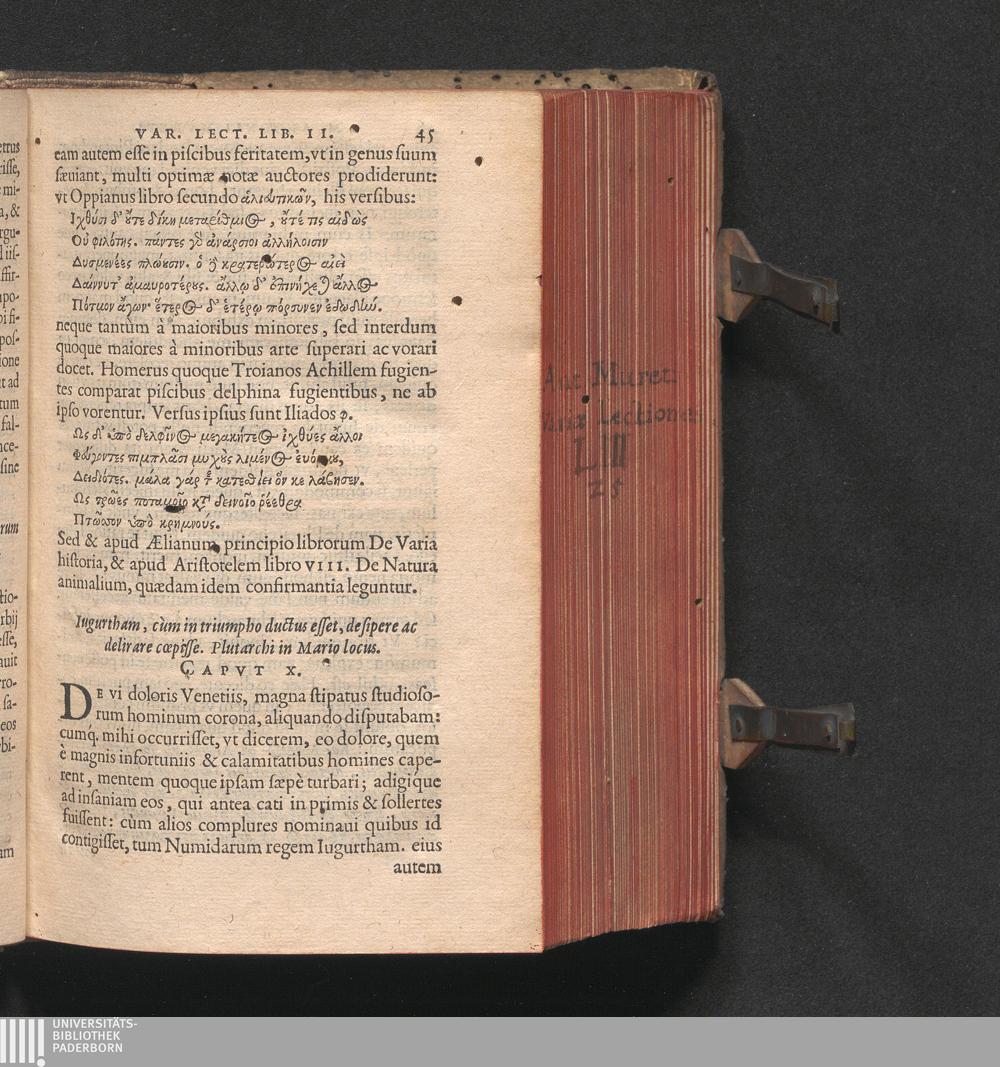 VAR. LECT. LIB. II. 45
eam autem esse in piscibus feritatem, vt in genus suum
sæuiant, multi optimæ notæ auctores prodiderunt:
vt Oppianus libro secundo ἁλιευτικῶν, his versibus:
Ιχθύσι δ' ὔτε δίκη μεταρίθμιος, ὔτέ τις αἰδὼς
Οὐ φιλότης. πάντες γὸ ἀνάρσιοι ἀλλήλοισιν
Δυσμενέες πλώυσιν. ὁ ἢ κρατερώτερος αἰεὶ
Δαίνυτ' ἀμαυροτέρυς. ἄλλῳ δ' ἐπινήχε) ἄλλος
Πότμον ἄγων· ἕτερος δ' ἑτέρῳ πόρσυνεν ἐδωδlώ.
neque tantùm à maioribus minores, sed interdum
quoque maiores à minoribus arte superari ac vorari
docet. Homerus quoque Troianos Achillem fugien-
tes comparat piscibus delphina fugientibus, ne ab
ipso vorentur. Versus ipsius sunt Iliados φ.
Ως δ' ὑπὸ δελφῖνος μεγακήτεος ἰχθύες ἄλλοι
Φεύγοντες πιμπλᾶσι μυχὺς λιμένος
Δειδιότες. μάλα γάρ τε κατεσθίει ὅν κε λάβησεν.
Ως τρῶες ποταμοῖο κτ' δεινοῖο ῥέεθρα
Πτῶσσον ὑπὸ κρημνούς.
Sed & apud Ælianum principio librorum De Varia
historia, & apud Aristotelem libro VIII. De Natura
animalium, quædam idem confirmantia leguntur.
Iugurtham, cùm in triumpho ductus esset, desipere ac
delirare cœpisse. Plutarchi in Mario locus.
CAPVT X.
DE vi doloris Venetiis, magna stipatus studioso-
rum hominum corona, aliquando disputabam:
cumq́. mihi occurrisset, vt dicerem, eo dolore, quem
è magnis infortuniis & calamitatibus homines cape-
rent, mentem quoque ipsam sæpè turbari; adigique
ad insaniam eos, qui antea cati in primis & sollertes
fuissent: cùm alios complures nominaui quibus id
contigisset, tum Numidarum regem Iugurtham. eius
autem
Ant Muret
Variæ Lectiones
LIII
25
UNIVERSITÄTS-
BIBLIOTHEK
PADERBORN